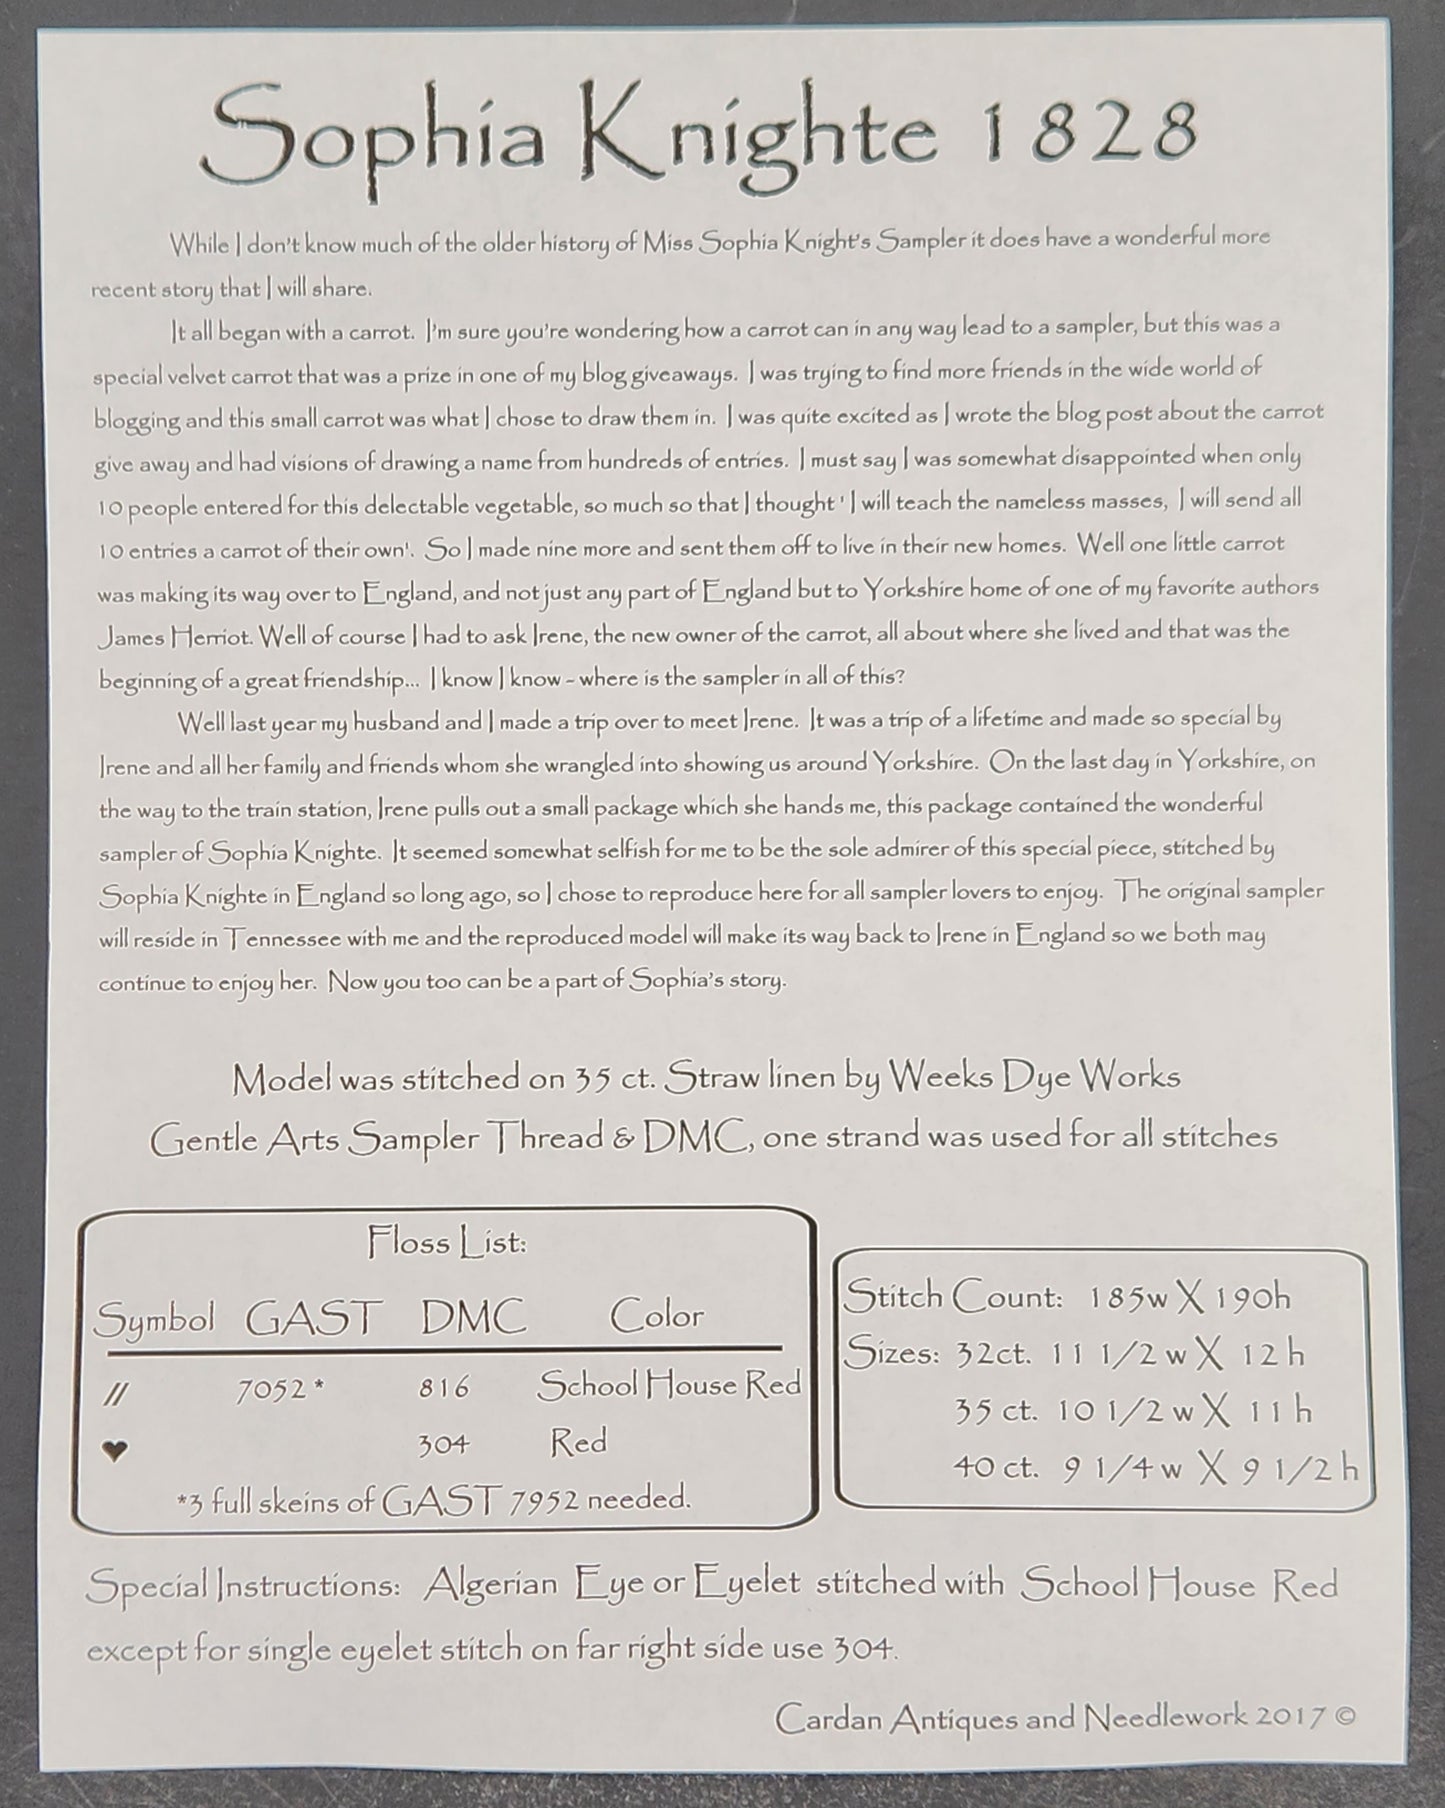 Sophia Knighte 1828
While I don't know much of the older history of Miss Sophia Knight's Sampler it does have a wonderful more
recent story that I will share.
It all began with a carrot. I'm sure you're wondering how a carrot can in any way lead to a sampler, but this was a
special velvet carrot that was a prize in one of my blog giveaways. I was trying to find more friends in the wide world of
blogging and this small carrot was what I chose to draw them in. I was quite excited as I wrote the blog post about the carrot
give away and had visions of drawing a name from hundreds of entries. I must say I was somewhat disappointed when only
10 people entered for this delectable vegetable, so much so that I thought ' I will teach the nameless masses, I will send all
10 entries a carrot of their own'. So I made nine more and sent them off to live in their new homes. Well one little carrot
was making its way over to England, and not just any part of England but to Yorkshire home of one of my favorite authors
James Herriot. Well of course I had to ask Irene, the new owner of the carrot, all about where she lived and that was the
beginning of a great friendship... I know I know - where is the sampler in all of this?
Well last year my husband and I made a trip over to meet Irene. It was a trip of a lifetime and made so special by
Irene and all her family and friends whom she wrangled into showing us around Yorkshire. On the last day in Yorkshire, on
the way to the train station, Irene pulls out a small package which she hands me, this package contained the wonderful
sampler of Sophia Knighte. It seemed somewhat selfish for me to be the sole admirer of this special piece, stitched by
Sophia Knighte in England so long ago, so I chose to reproduce here for all sampler lovers to enjoy. The original sampler
will reside in Tennessee with me and the reproduced model will make its way back to Irene in England so we both may
continue to enjoy her. Now you too can be a part of Sophia's story.
Model was stitched on 35 ct. Straw linen by Weeks Dye Works
Gentle Arts Sampler Thread & DMC, one strand was used for all stitches
Floss List:
Symbol GAST DMC Color
// 7052 * 816 School House Red
♥ 304 Red
*3 full skeins of GAST 7952 needed.
Stitch Count: 185w X 190h
Sizes: 32ct. 11 1/2 w X 12 h
35 ct. 10 1/2 w X 11 h
40 ct. 9 1/4 w X 9 1/2 h
Special Instructions: Algerian Eye or Eyelet stitched with School House Red
except for single eyelet stitch on far right side use 304.
Cardan Antiques and Needlework 2017 ©